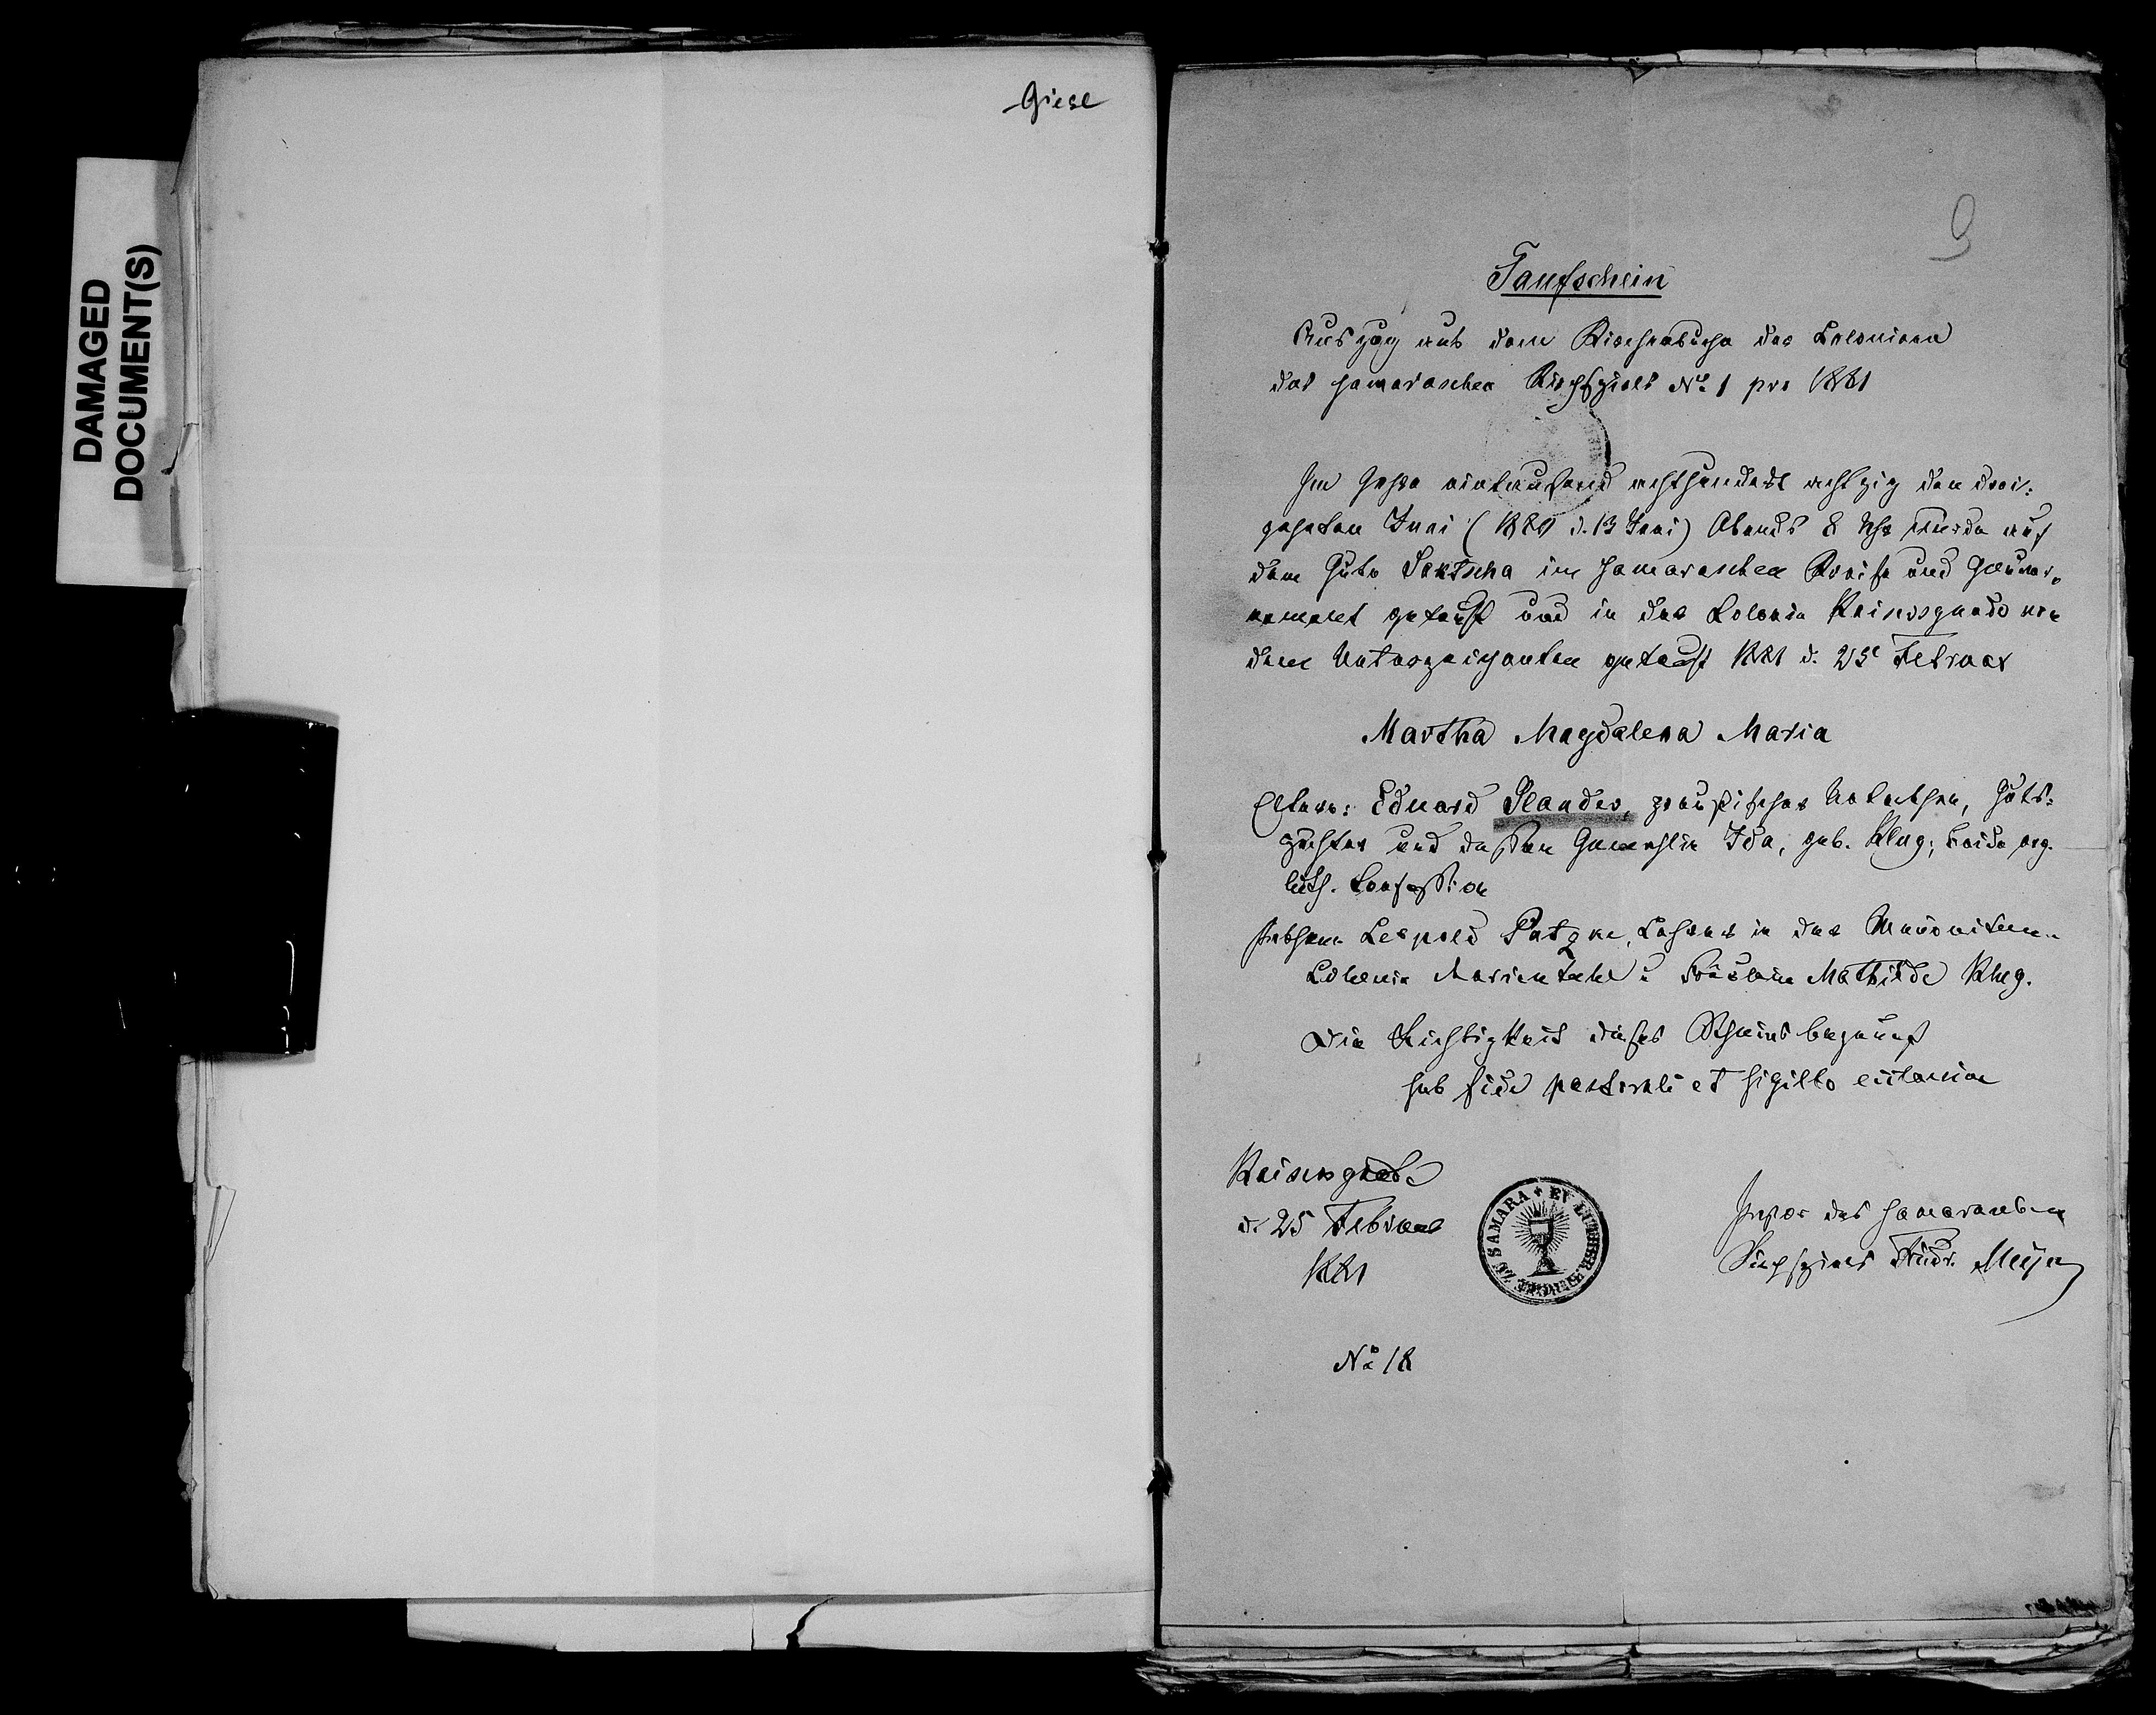 Giese
DAMAGED
DOCUMENT(S)
9
Taufschein
Auszug aus dem Kirchenbuche der Colonieen
des Samaraschen Kirchspiels No. 1 pro 1881
Im Jahre eintausend achthundert achtzig den drei-
zehnten Juni (1880 d. 13 Juni) Abends 8 Uhr wurde auf
dem Gute Soktscha im Samaraschen Kreise und Gouver-
nement getauft und in der Colonie Kaisersgnade von
dem Unterzeichneten getauft 1881 d. 25 Februar
Martha Magdalena Maria
Eltern: Eduard Plander, preußischer Unterthan, Guts-
pächter und dessen Gemahlin Ida, geb. Klug; beide evg.
luth. Confession
Leopold Patzke, Lehrer in der Mennoniten-
Colonie Marienthal u Fräulein Mathilde Klug.
Die Richtigkeit dieses Scheines bezeugt
sub fide pastorali et sigillo
Kaisersgnade
d. 25 Februar
1881
ZU SAMARA + EV. LUTHER. KIRCHE
Pastor des Samaraschen
Kirchspiels Friedr. Meyer
No 18